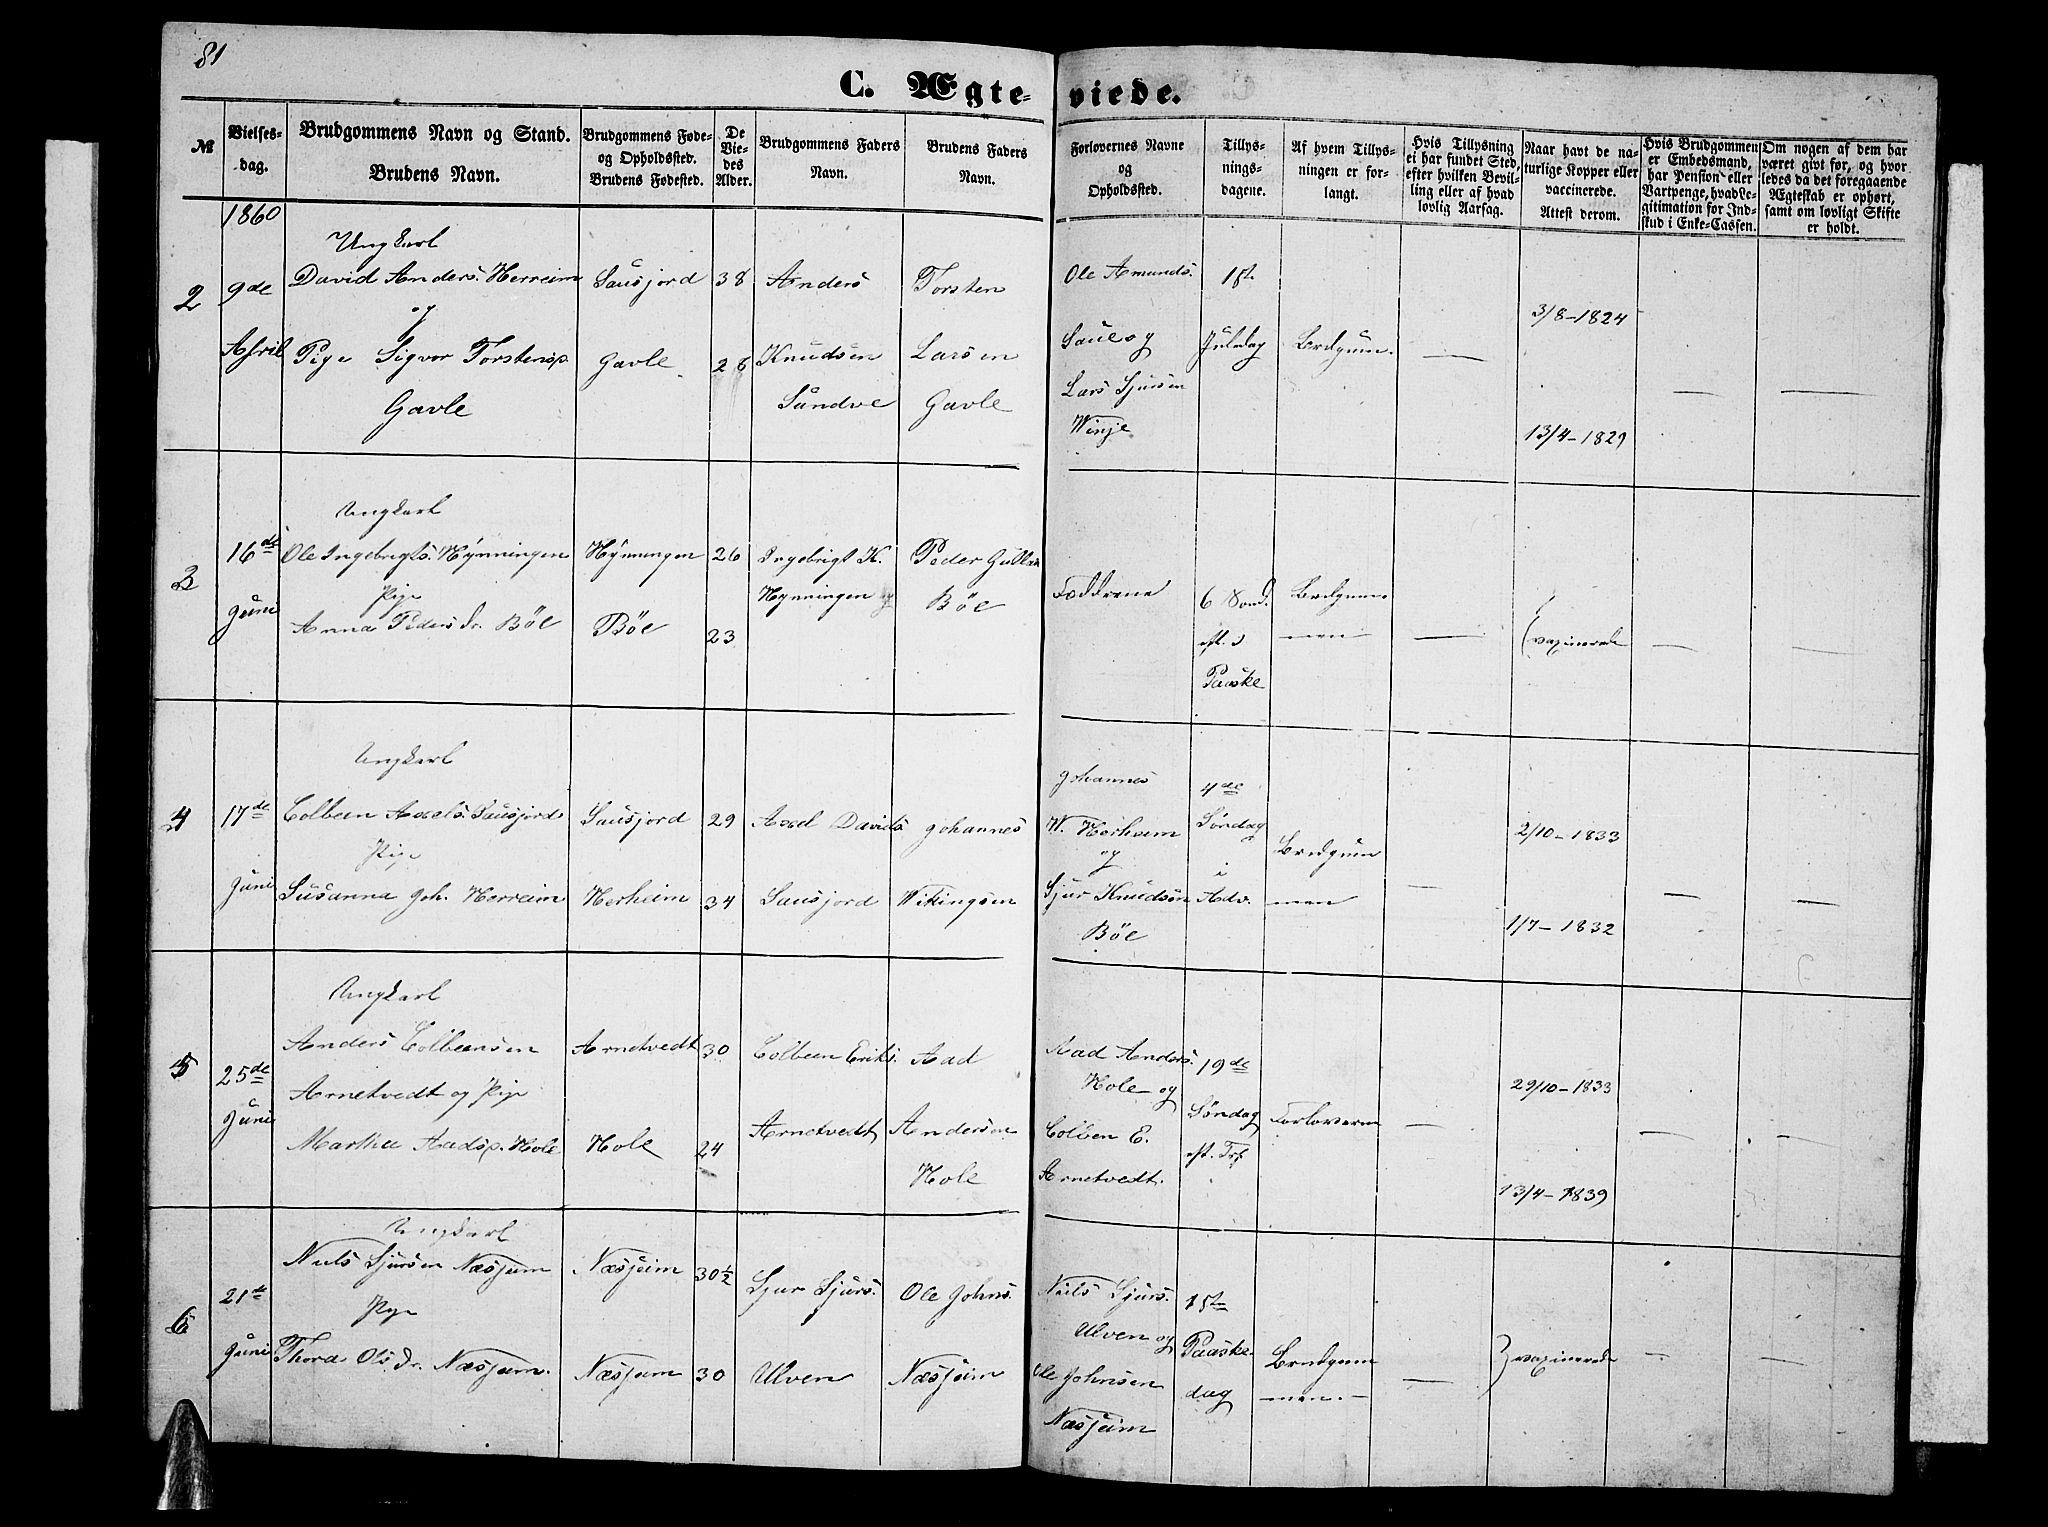 81
C. Ægte- viede.
№
Vielses-
dag.
Brudgommens Navn og Stand.
Brudens Navn.
Brudgommens Føde-
og Opholdssted.
Brudens Fødested.
De
Vie-
des
Alder.
Brudgommens Faders
Navn.
Brudens Faders
Navn.
Forlovernes Navne
og
Opholdssted.
Tillys-
nings-
dagene.
Af hvem Tillys-
ningen er for-
langt.
Hvis Tillysning
ei har fundet Sted,
efter hvilken Bevil-
ling eller af hvad
lovlig Aarsag.
Naar havt de na-
turlige Kopper eller
vaccinerede.
Attest derom.
Hvis Brudgommen
er Embedsmand,
har Pension eller
Vartpenge, hvad Le-
gitimation for Ind-
skud i Enke-Cassen.
Om nogen af dem har
været givt før, og hvor
ledes da det foregaaende
Ægteskab er ophørt,
samt om lovligt Skifte
er holdt.
1860
2
9de
April
Ungkarl
David Anders. Herreim
og
Pige Sigvor Torstensd.
Gavle
Sausjord
Gavle
38
28
Anders
Knudsen
Sundve
Torsten
Larsen
Gavle
Ole Amunds.
Saue og
Lars Sjursen
Winje
1ste
Juledag
Brdgum.
—
3/8-1824
13/4-1829
—
—
3
16de
Juni
Ungkarl
Ole Ingebrigts. Hynningen
Pige
Anna Peders dr. Böe
Hynningen
Böe
26
23
Ingebrigt K.
Hynningen
Peder
Böe
Fæddrene
6 Sønd.
eft.
Paaske
Brdgum-
men
—
vaxinerede
—
—
4
17de
Juni
Ungkarl
Colbeen Axels. Sausjord
Pige
Susanna Joh. Herreim
Sausjord
Herheim
29
34
Axel Davids.
Sausjord
Johannes
Wikingsen
Johannes
W. Herheim
og
Sjur Knudsen
Böe
4de
Søndag
i
Adv.
Brudgum
men
—
2/10-1833
1/7-1832
—
—
5
25de
Juni
Ungkarl
Anders Colbeensen
Arnetvedt og Pige
Martha Aadsd. Hole
Arnetvedt
Hole
30
24
Colbeen Eriks.
Arnetvedt
Aad
Andersen
Hole
Aad Anders.
Hole og
Colben E.
Arnetvedt.
19de
Søndag
eft. Trf.
Forloverne
—
29/10-1833
13/4-1839
—
—
6
21de
Juni
Ungkarl
Niels Sjursen Næsjeim
Pige
Thora Ols dr. Næsjeim.
Næsjeim
Næsjeim
30½
30
Sjur Sjurs.
Ulven
Ole Johns.
Næsjeim
Niels Sjurs.
Ulven og
Ole Johnsen
Næsjeim
1ste
Paaske-
dag
Brudgum
men.
—
vaxinerede
—
—